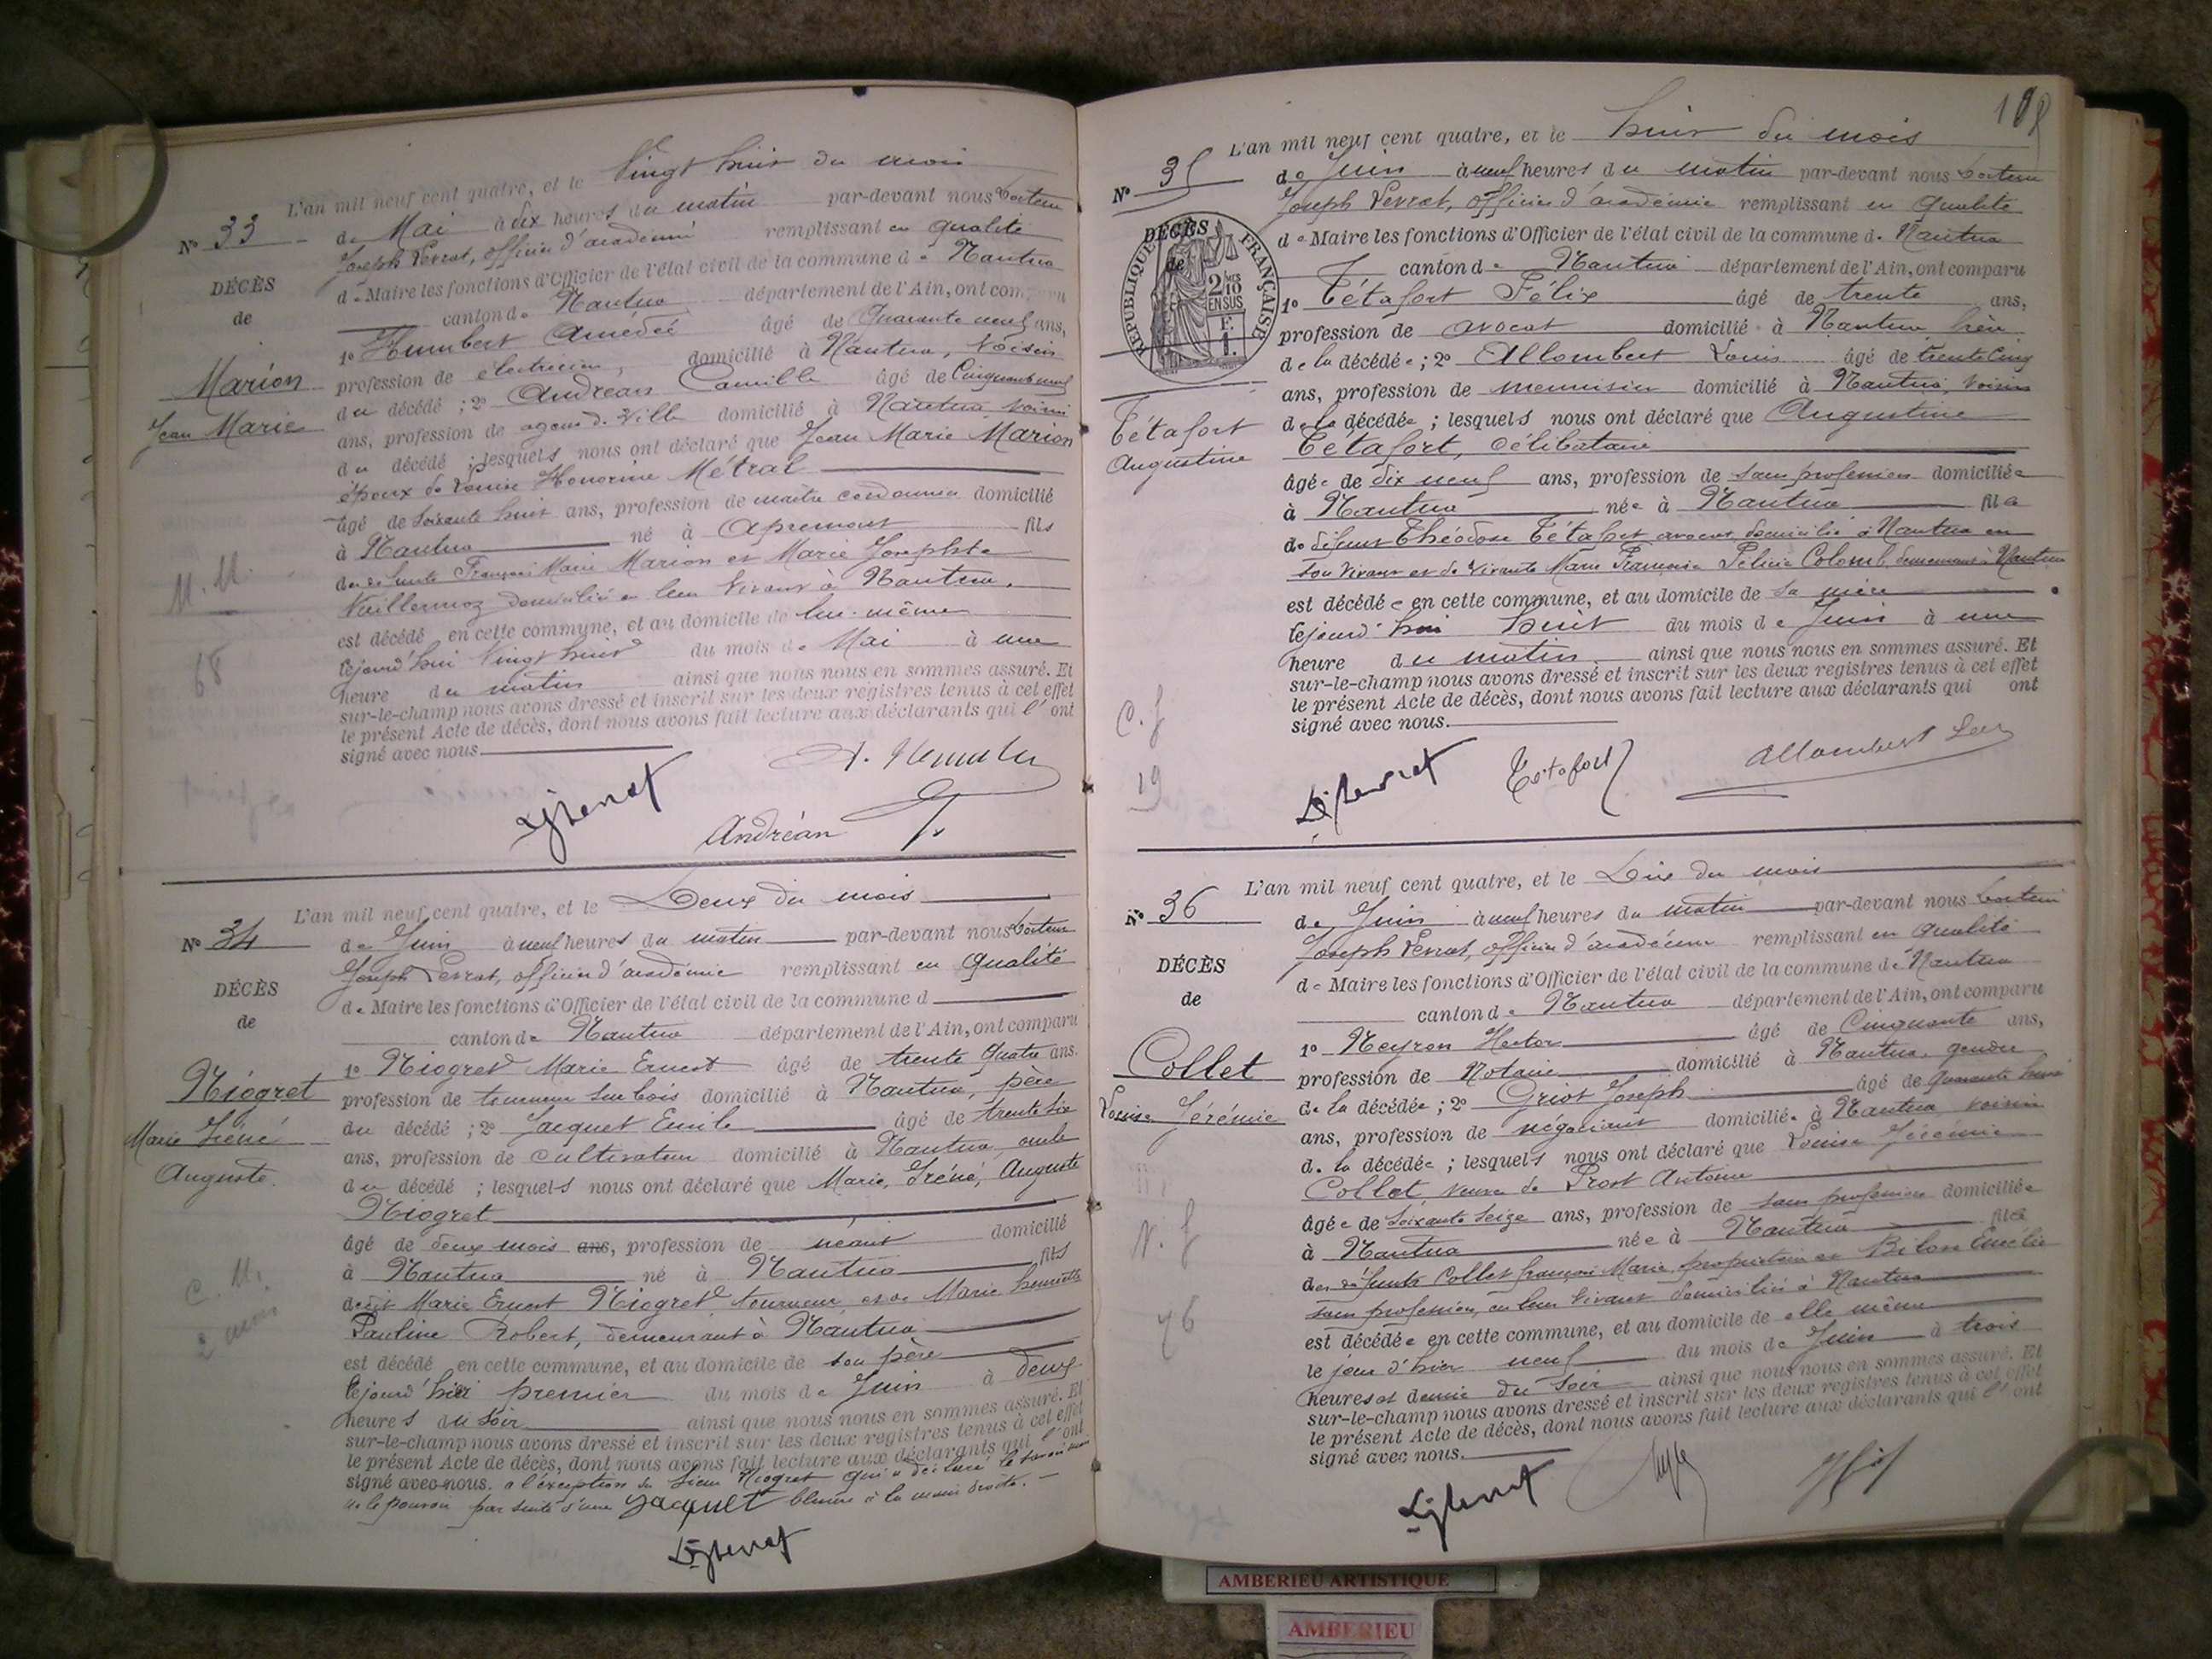 L'an mil neuf cent quatre, et le Vingt huit du mois
N° 33
de Mai à dix heures du matin par-devant nous Docteur
Joseph Levrat, officier d'académie remplissant en qualité
DÉCÈS
de
Marion
Jean Marie
M. M.
68
de Maire les fonctions d'Officier de l'état civil de la commune de Nantua
canton de Nantua département de l'Ain, ont comparu
1° Humbert Amédée âgé de Quarante neuf ans,
profession de électricien, domicilié à Nantua, voisin
du décédé ; 2° Andréan Camille âgé de Cinquante neuf
ans, profession de agent de Ville domicilié à Nantua, voisin
du décédé ; lesquels nous ont déclaré que Jean Marie Marion
époux de Louise Honorine Métral
âgé de Soixante huit ans, profession de maître cordonnier domicilié
à Nantua né à Apremont fils
de défunts François Marie Marion et Marie Josephte
Vuillermoz domiciliés en leur vivant à Nantua.
est décédé en cette commune, et au domicile de lui-même
lejourd'hui Vingt huit du mois de Mai à une
heure du matin ainsi que nous nous en sommes assuré. Et
sur-le-champ nous avons dressé et inscrit sur les deux registres tenus à cet effet
le présent Acte de décès, dont nous avons fait lecture aux déclarants qui l'ont
signé avec nous.
Andréan
L'an mil neuf cent quatre, et le Deux du mois
N° 34
de Juin à neuf heures du matin par-devant nous Docteur
Joseph Levrat, officier d'académie remplissant en qualité
DÉCÈS
de
Niogret
Marie Iréné
Auguste.
C. M.
2 mois
de Maire les fonctions d'Officier de l'état civil de la commune d
canton de Nantua département de l'Ain, ont comparu
1° Niogret Marie Ernest âgé de trente quatre ans.
profession de tourneur sur bois domicilié à Nantua, père
du décédé ; 2° Jacquet Emile âgé de trente six
ans, profession de cultivateur domicilié à Nantua, oncle
du décédé ; lesquels nous ont déclaré que Marie, Iréné, Auguste
Niogret
âgé de deux mois ans, profession de néant domicilié
à Nantua né à Nantua fils
dudit Marie Ernest Niogret tourneur, et de Marie henriette
Pauline Robert, demeurant à Nantua
est décédé en cette commune, et au domicile de son père
lejourd'hier premier du mois de Juin à deux
heures du soir ainsi que nous nous en sommes assuré. Et
sur-le-champ nous avons dressé et inscrit sur les deux registres tenus à cet effet
le présent Acte de décès, dont nous avons fait lecture aux déclarants qui l'ont
signé avec nous. à l'exception du sieur Niogret qui a déclaré le savoir mais
ne le pouvoir par suite d'une blessure à la main droite.
Jacquet
108
L'an mil neuf cent quatre, et le huit du mois
N° 35
de Juin à neuf heures du matin par-devant nous Docteur
Joseph Levrat, officier d'académie remplissant en qualité
DÉCÈS
de
RÉPUBLIQUE FRANÇAISE
2/10 EN SUS
Tétafort
Augustine
C. f
19
de Maire les fonctions d'Officier de l'état civil de la commune de Nantua
canton de Nantua département de l'Ain, ont comparu
1° Tétafort Félix âgé de trente ans,
profession de avocat domicilié à Nantua frère
de la décédée ; 2° Allombert Louis âgé de trente cinq
ans, profession de menuisier domicilié à Nantua, voisin
de la décédée ; lesquels nous ont déclaré que Augustine
Tétafort, célibataire
âgée de dix neuf ans, profession de sans profession domiciliée
à Nantua née à Nantua fille
de défunt Théodose Tétafort avocat, domicilié à Nantua en
son vivant et de vivante Marie Françoise Colomb, demeurant à Nantua
est décédée en cette commune, et au domicile de sa mère
lejourd'hui huit du mois de Juin à une
heure du matin ainsi que nous nous en sommes assuré. Et
sur-le-champ nous avons dressé et inscrit sur les deux registres tenus à cet effet
le présent Acte de décès, dont nous avons fait lecture aux déclarants qui ont
signé avec nous.
Tétafort
Allombert
L'an mil neuf cent quatre, et le Dix du mois
N° 36
de Juin à neuf heures du matin par-devant nous Docteur
Joseph Levrat, officier d'académie remplissant en qualité
DÉCÈS
de
Collet
Louise Jérémie
V. f
76
de Maire les fonctions d'Officier de l'état civil de la commune de Nantua
canton de Nantua département de l'Ain, ont comparu
1° Neyron Hector âgé de Cinquante ans,
profession de Notaire domicilié à Nantua, gendre
de la décédée ; 2° Griot Joseph âgé de quarante huit
ans, profession de négociant domicilié à Nantua, voisin
de la décédée ; lesquels nous ont déclaré que Louise Jérémie
Collet, veuve de Prost Antoine
âgée de Soixante Seize ans, profession de sans profession domiciliée
à Nantua née à Nantua fille
des défunts Collet françois Marie, propriétaire et Emélie
sans profession, en leur vivant domiciliés à Nantua
est décédée en cette commune, et au domicile de elle même
le jour d'hier neuf du mois de Juin à trois
heures et demie du soir ainsi que nous nous en sommes assuré. Et
sur-le-champ nous avons dressé et inscrit sur les deux registres tenus à cet effet
le présent Acte de décès, dont nous avons fait lecture aux déclarants qui l'ont
signé avec nous.
AMBERIEU ARTISTIQUE
AMBERIEU